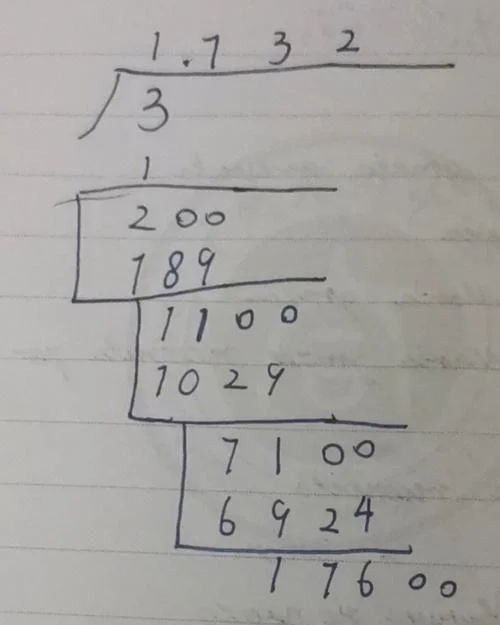 1.732
3
1
200
189
1100
1029
7100
6924
17600